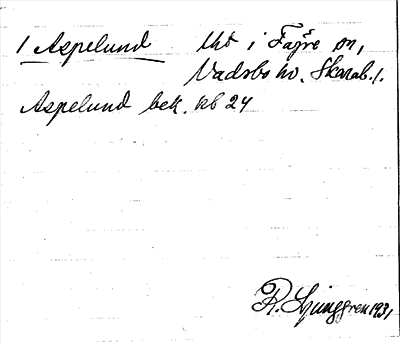 1 Aspelund Uht i Fägre sn,
Vadsbo hd. Skarab. l.
Aspelund bek. kb 24
R. Ljunggren 1931